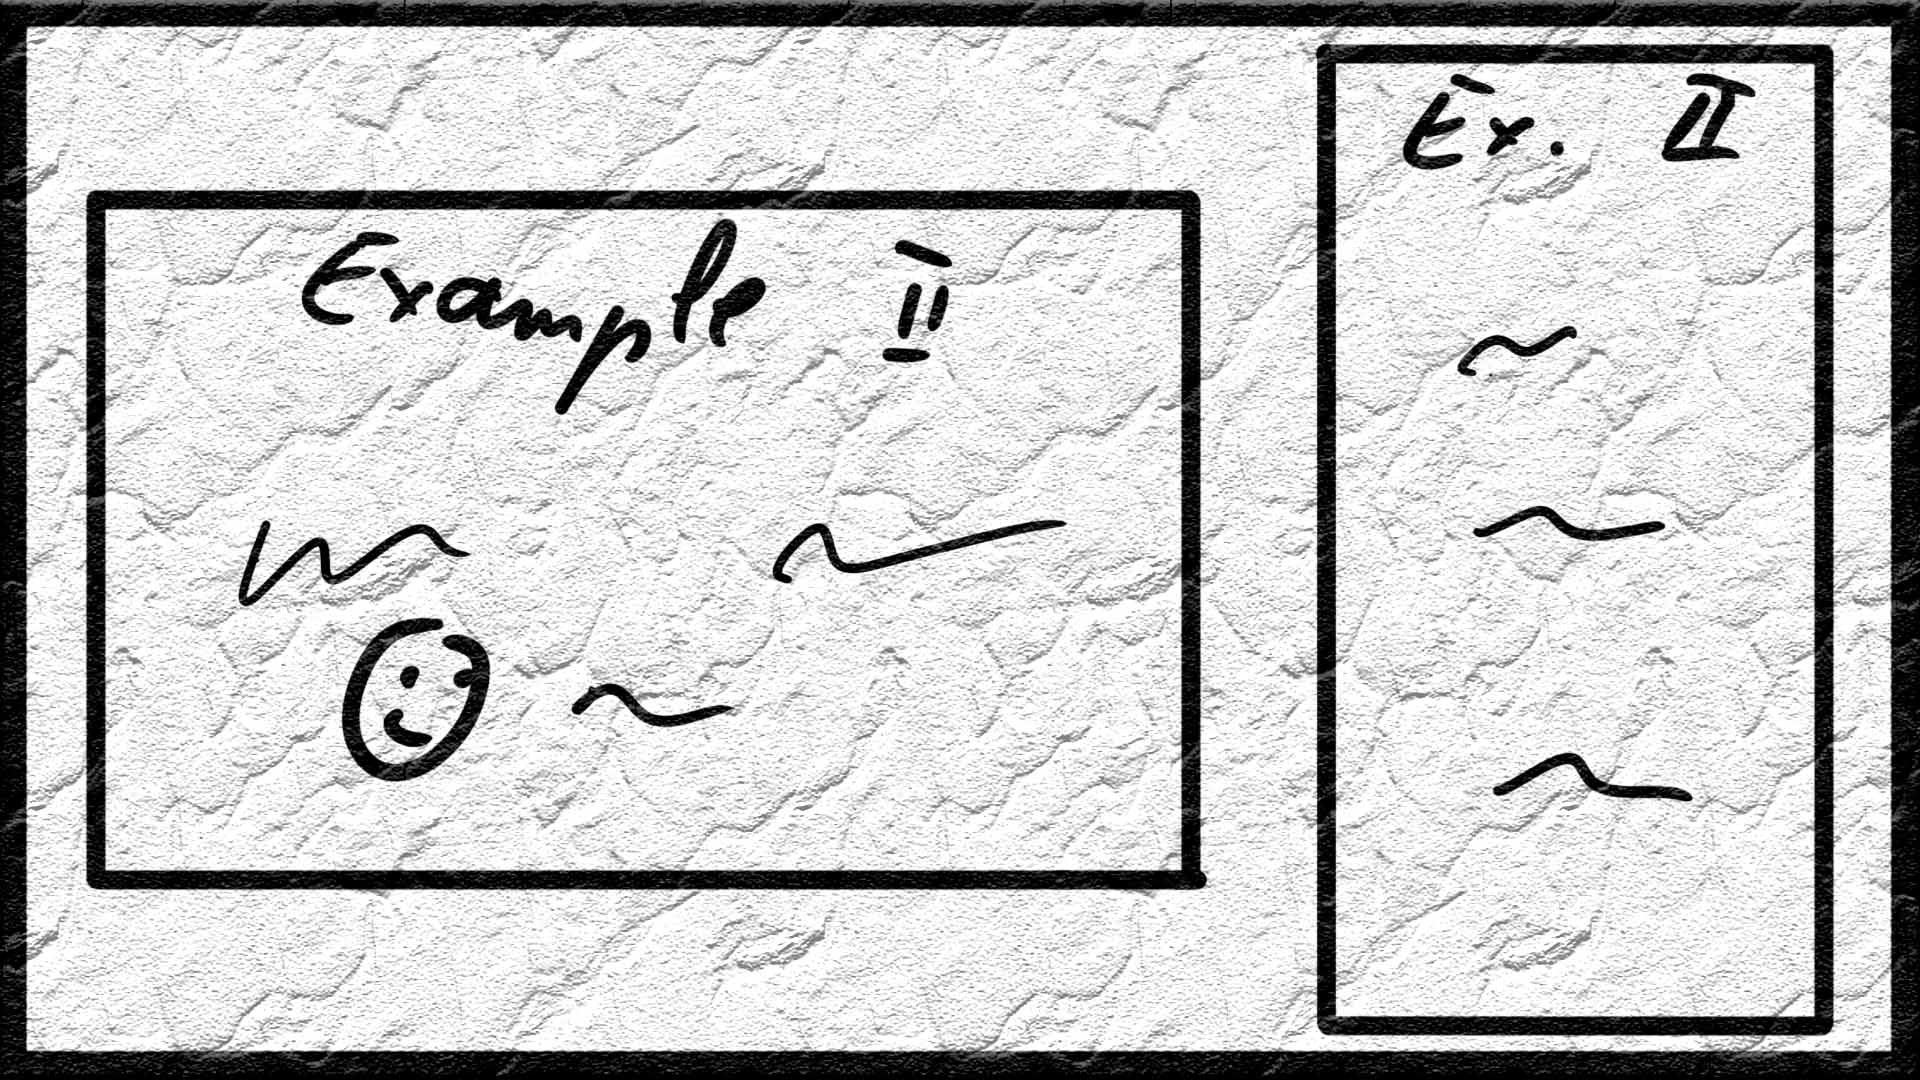 Example II
Ex. II